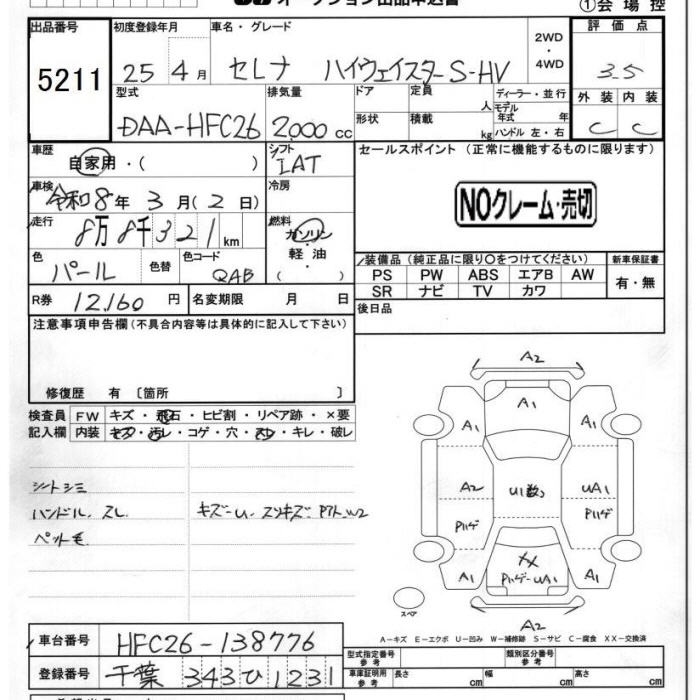 オークション出品申込書
①会場控
出品番号 初度登録年月 車名・グレード 2WD・4WD 評価点
5211 25年4月 セレナ ハイウェイスターS-HV 3.5
型式 排気量 ドア 定員 人 ディーラー・並行 外装 内装
DAA-HFC26 2,000cc 形状 積載 kg モデル年式 年 ハンドル 左・右 C C
車歴 自家用・( ) シフト IAT セールスポイント (正常に機能するものに限ります)
車検 令和8年3月(2日) 冷房
NOクレーム・売切
走行 8万8千321km 燃料 ガソリン・軽油 ( )
色 パール 色替 色コード QAB
装備品 (純正品に限り〇をつけてください) 新車保証書
PS PW ABS エアB AW 有・無
SR ナビ TV カワ
R券 12,160円 名変期限 月 日 後日品
注意事項申告欄 (不具合内容等は具体的に記入して下さい)
修復歴 有 〔箇所 〕
検査員 FW キズ・飛石・ヒビ割・リペア跡・×要
記入欄 内装 キズ・汚レ・コゲ・穴・スレ・キレ・破レ
シートシミ
ハンドル、スレ
ペット毛
キズ〜U、スリキズ
A2
A1
A1 A1
A2 U1数コ UA1
Pハゲ Pハゲ
XX
A1 Pハゲ〜UA1 A1
スペア
A2
A-キズ E-エクボ U-凹み W-補修跡 S-サビ C-腐食 XX-交換済
車台番号 HFC26-138776
型式指定番号 参考 類別区分番号 参考
登録番号 千葉 343 ひ 1231
車庫証明用 参考 長さ cm 幅 cm 高さ cm